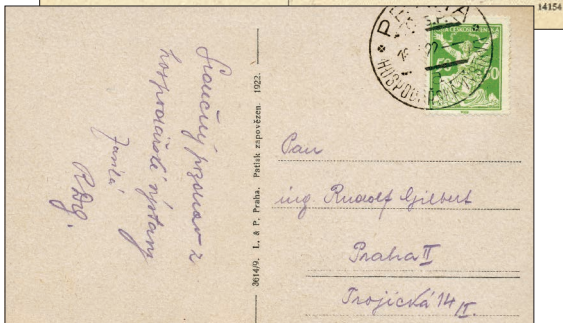 14154
PRAHA
HOSPODÁŘSKÁ
Srdečný pozdrav z
hospodářské výstavy
zasílá
3614/9. L. & P. Praha. Patisk zapovězen. 1922.
Pan
ing Rudolf Gilbert
Praha II
Trojická 14/II.